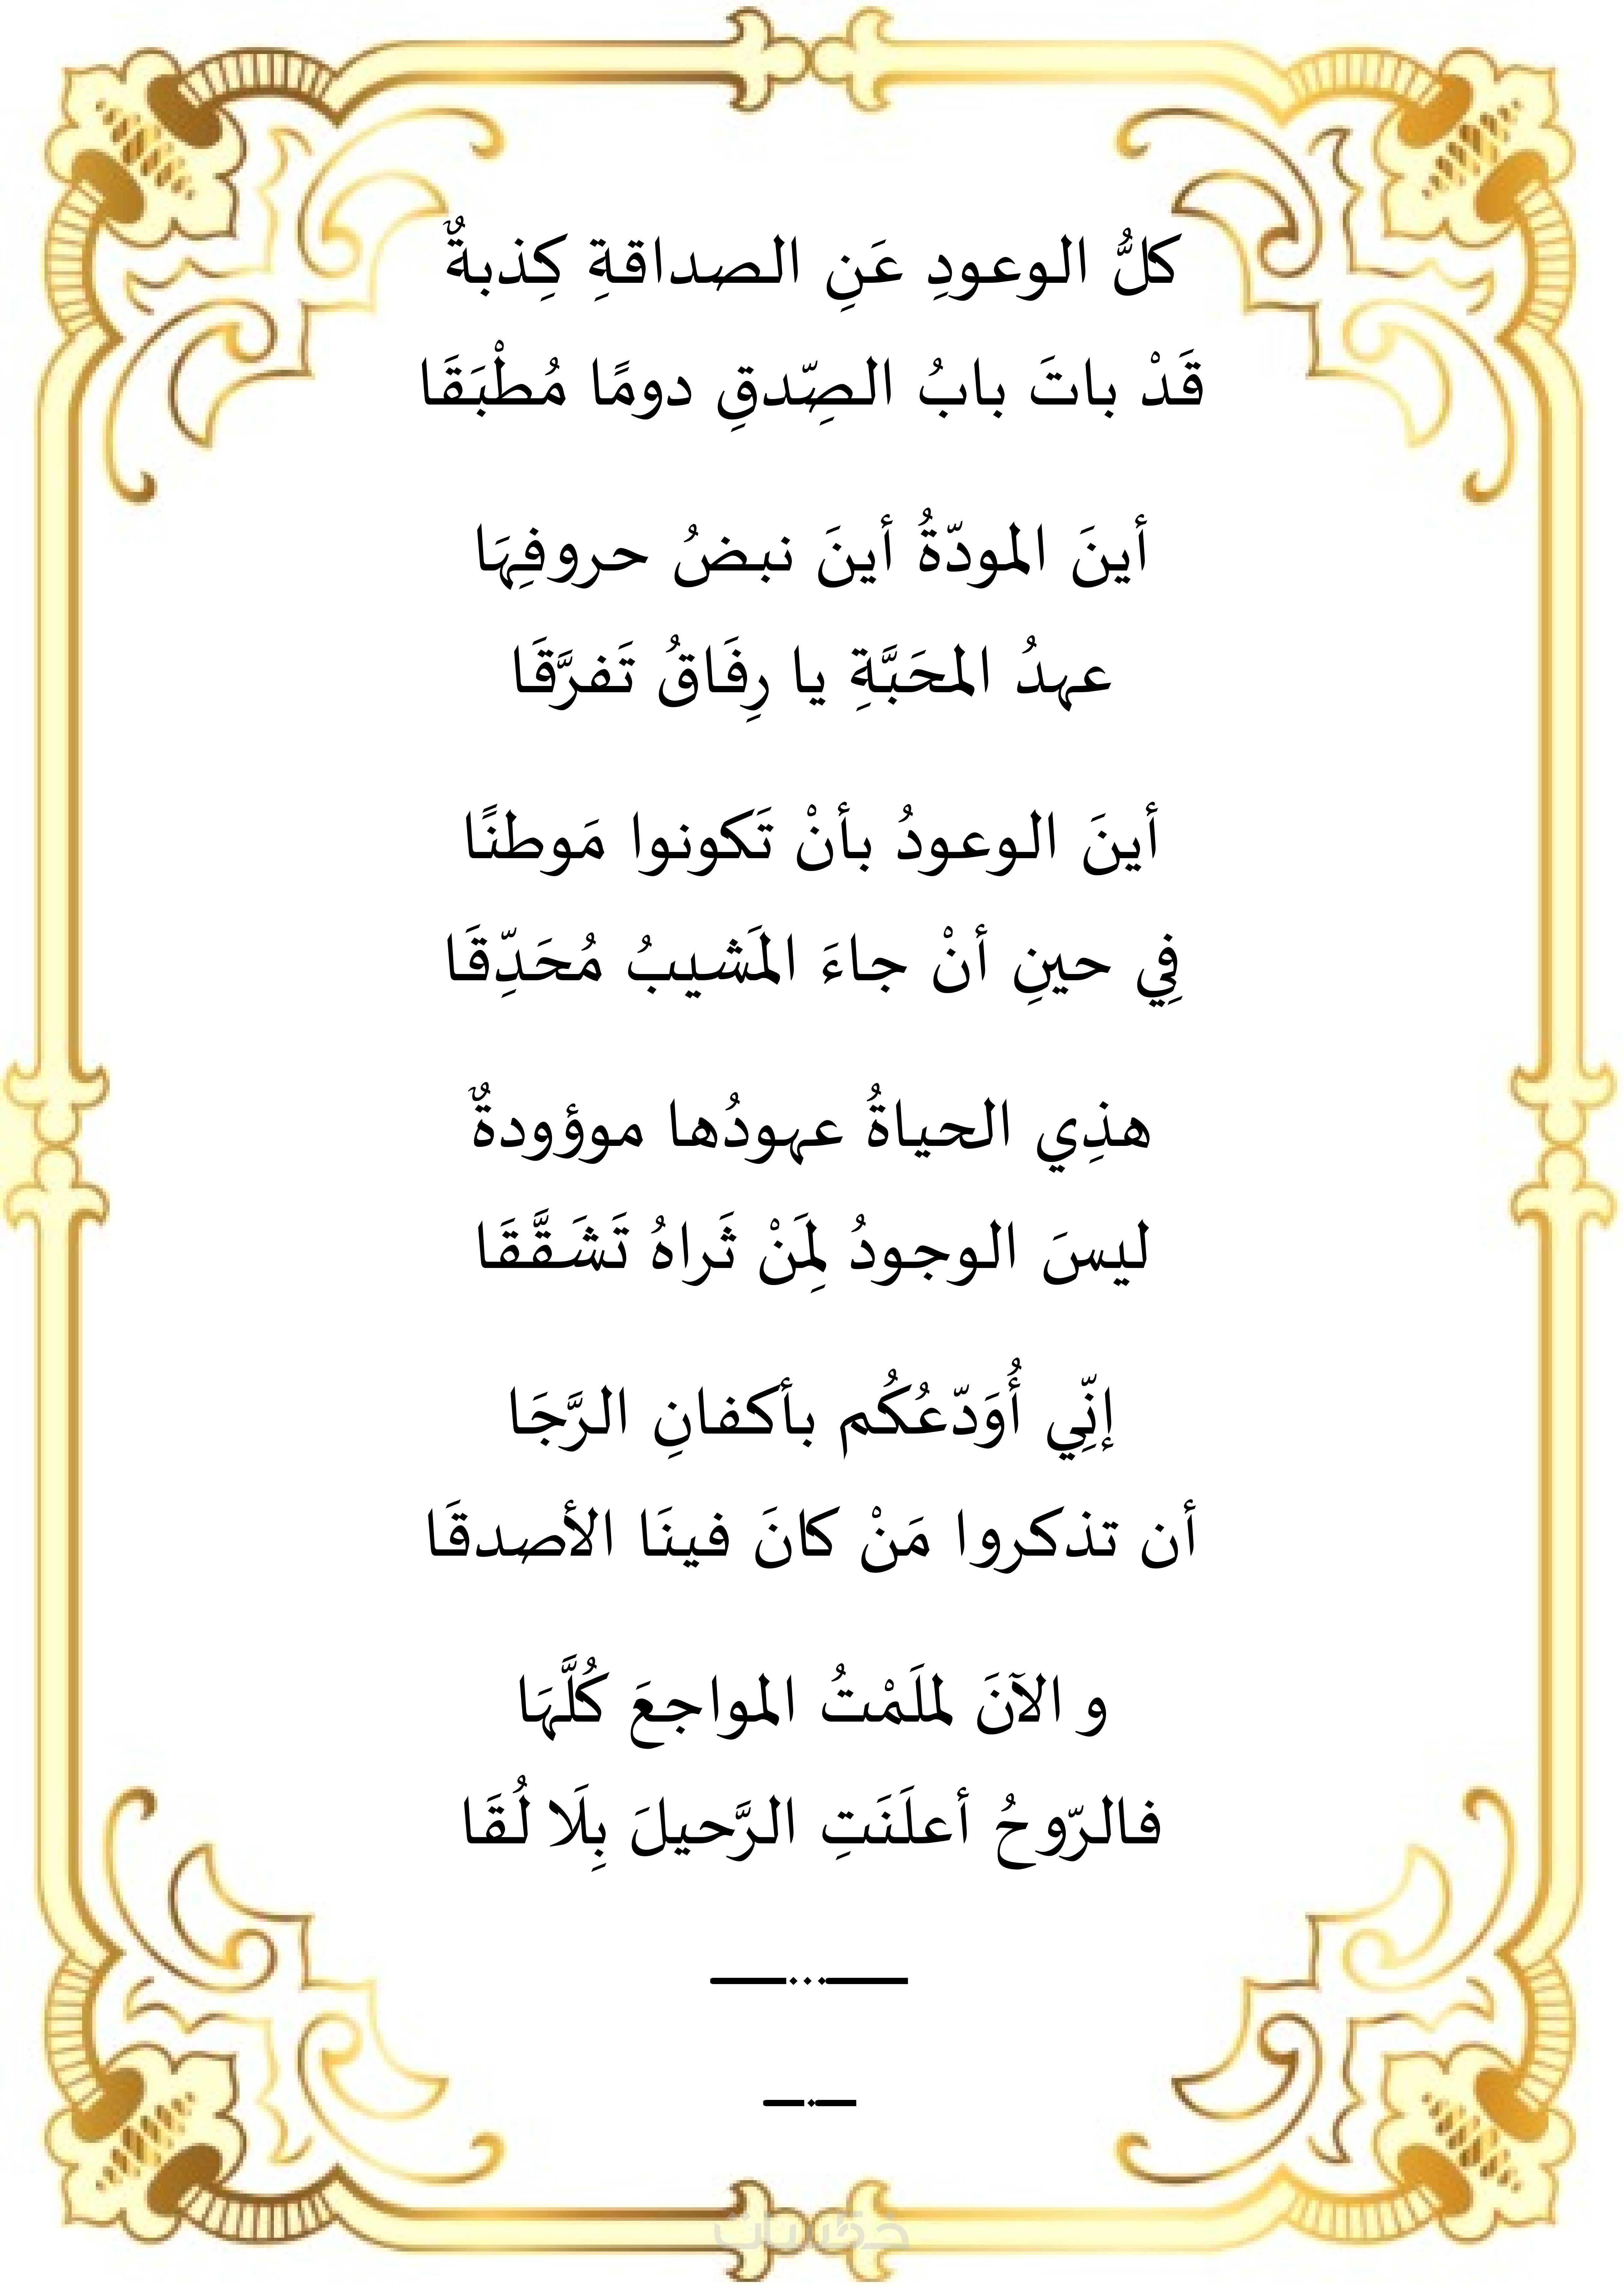 كلُّ الوعودِ عَنِ الصداقةِ كِذبةٌ
قَدْ باتَ بابُ الصِّدقِ دومًا مُطْبَقَا
أينَ المودّةُ أينَ نبضُ حروفِهَا
عهدُ المحَبَّةِ يا رِفَاقُ تَفرَّقَا
أينَ الوعودُ بأنْ تَكونوا مَوطنًا
فِي حينِ أنْ جاءَ المَشيبُ مُحَدِّقَا
هذِي الحياةُ عهودُها موؤودةٌ
ليسَ الوجودُ لِمَنْ ثَراهُ تَشَقَّقَا
إنِّي أُوَدّعُكُم بأكفانِ الرَّجَا
أن تذكروا مَنْ كانَ فينَا الأصدقَا
و الآنَ لملَمْتُ المواجعَ كُلَّهَا
فالرّوحُ أعلَنَتِ الرَّحيلَ بِلَا لُقَا
خمسات